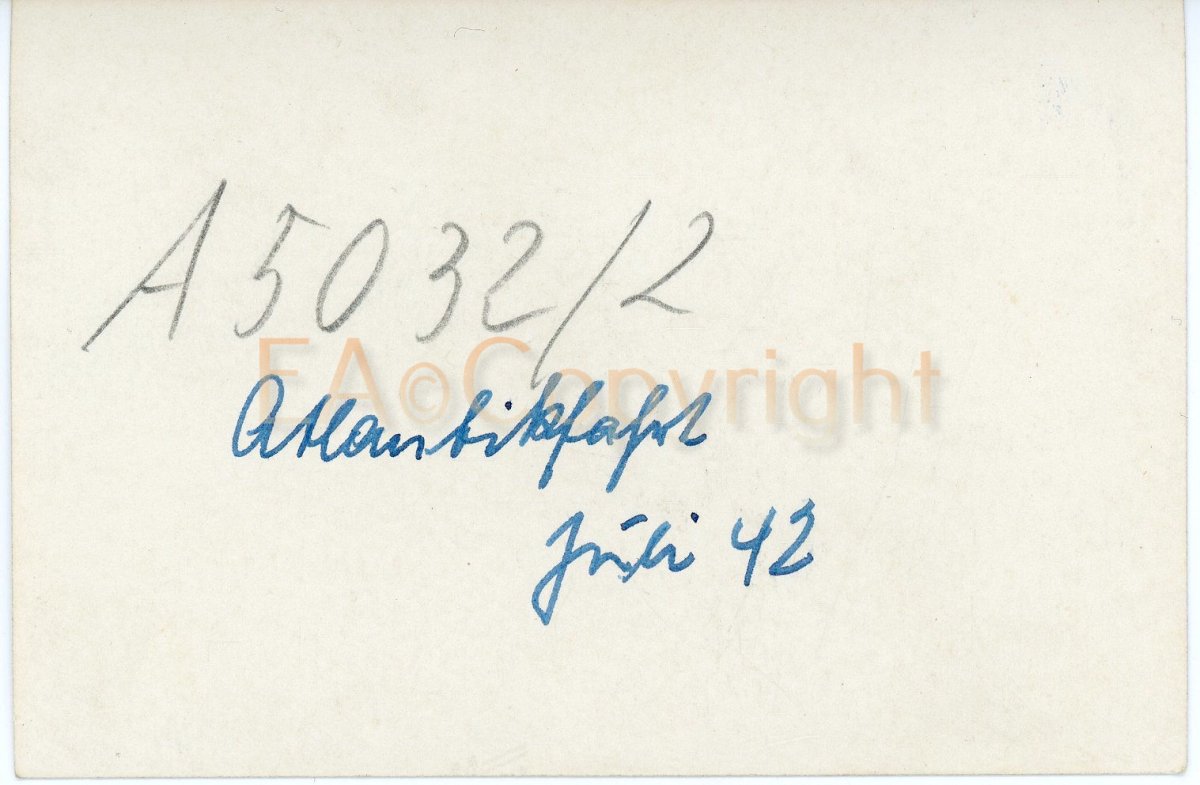 A 5032/2
EA©Copyright
Atlantikfahrt
Juli 42